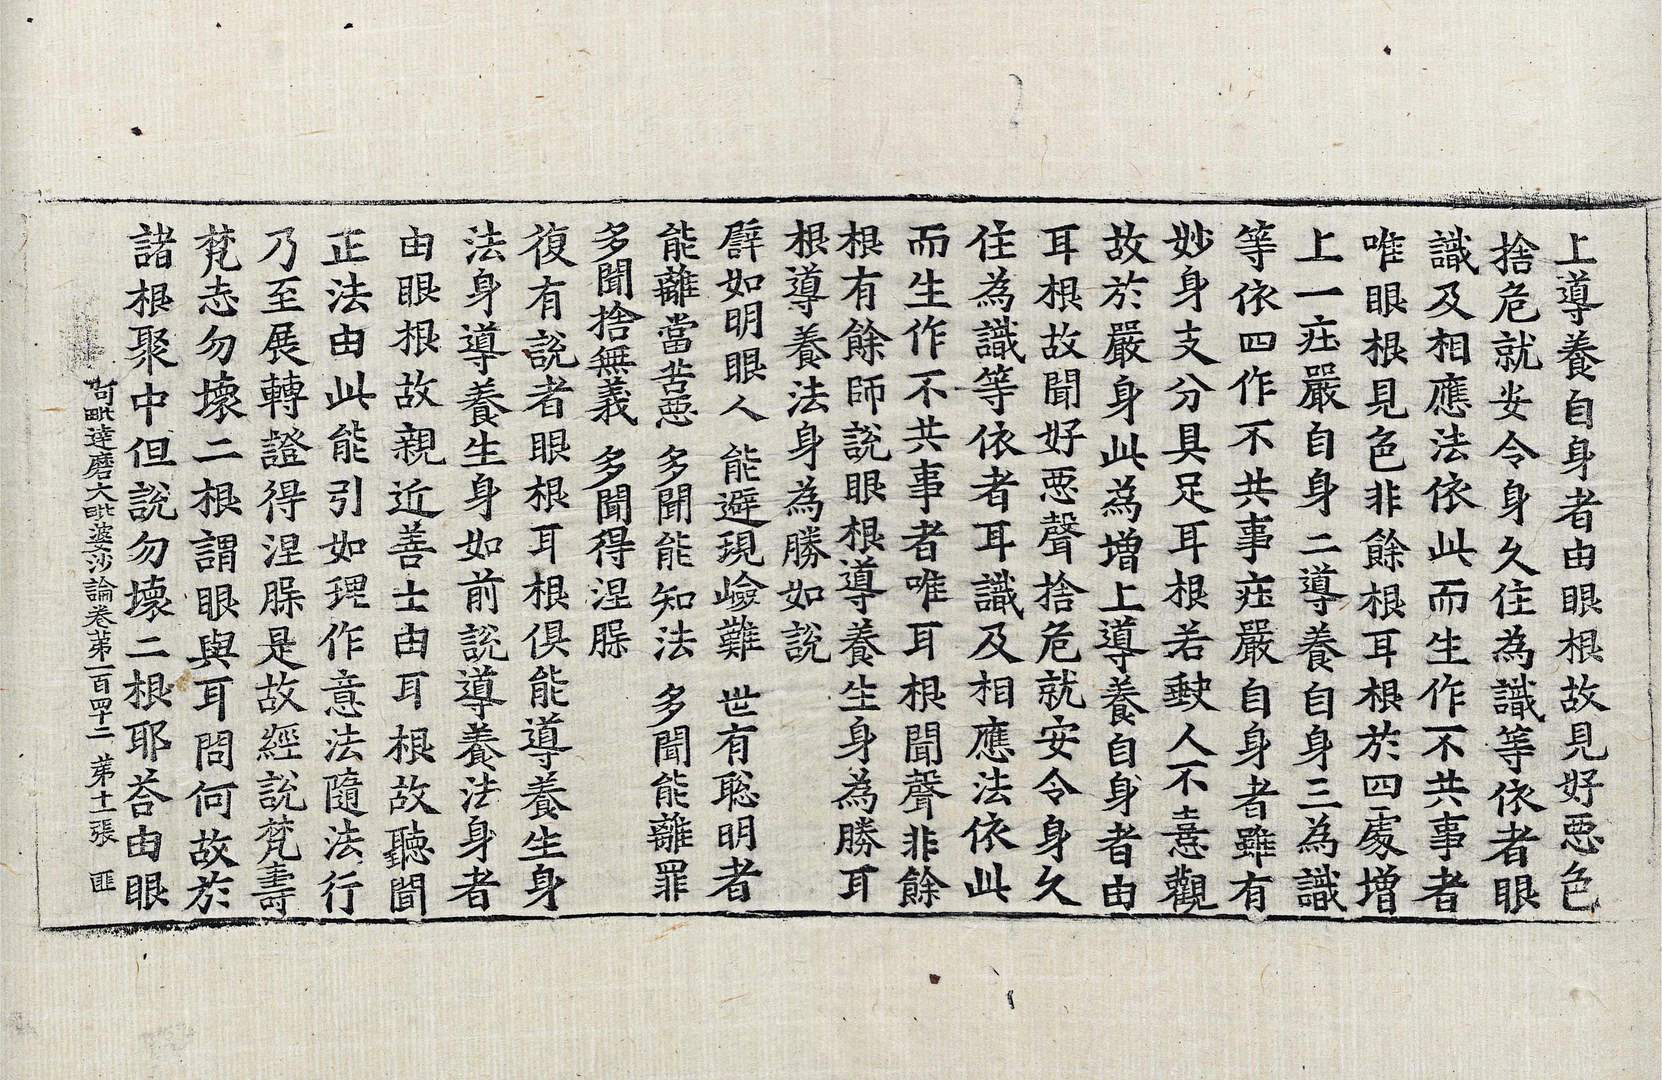 上導養自身者由眼根故見好惡色
捨危就安令身久住為識等依者眼
識及相應法依此而生作不共事者
唯眼根見色非餘根耳根於四處增
上一莊嚴自身二導養自身三為識
等依四作不共事莊嚴自身者雖有
妙身支分具足耳根若缺人不憙觀
故於嚴身此為增上導養自身者由
耳根故聞好惡聲捨危就安令身久
住為識等依者耳識及相應法依此
而生作不共事者唯耳根聞聲非餘
根有餘師說眼根導養生身為勝耳
根導養法身為勝如說
譬如明眼人 能避現嶮難 世有聡明者
能離當苦惡 多聞能知法 多聞能離罪
多聞捨無義 多聞得涅槃
復有說者眼根耳根俱能導養生身
法身導養生身如前說導養法身者
由眼根故親近善士由耳根故聽聞
正法由此能引如理作意法隨法行
乃至展轉證得涅槃是故經說梵壽
梵志勿壞二根謂眼與耳問何故於
諸根聚中但說勿壞二根耶荅由眼
阿毗達磨大毗婆沙論卷苐一百四十二 苐十一張 匪